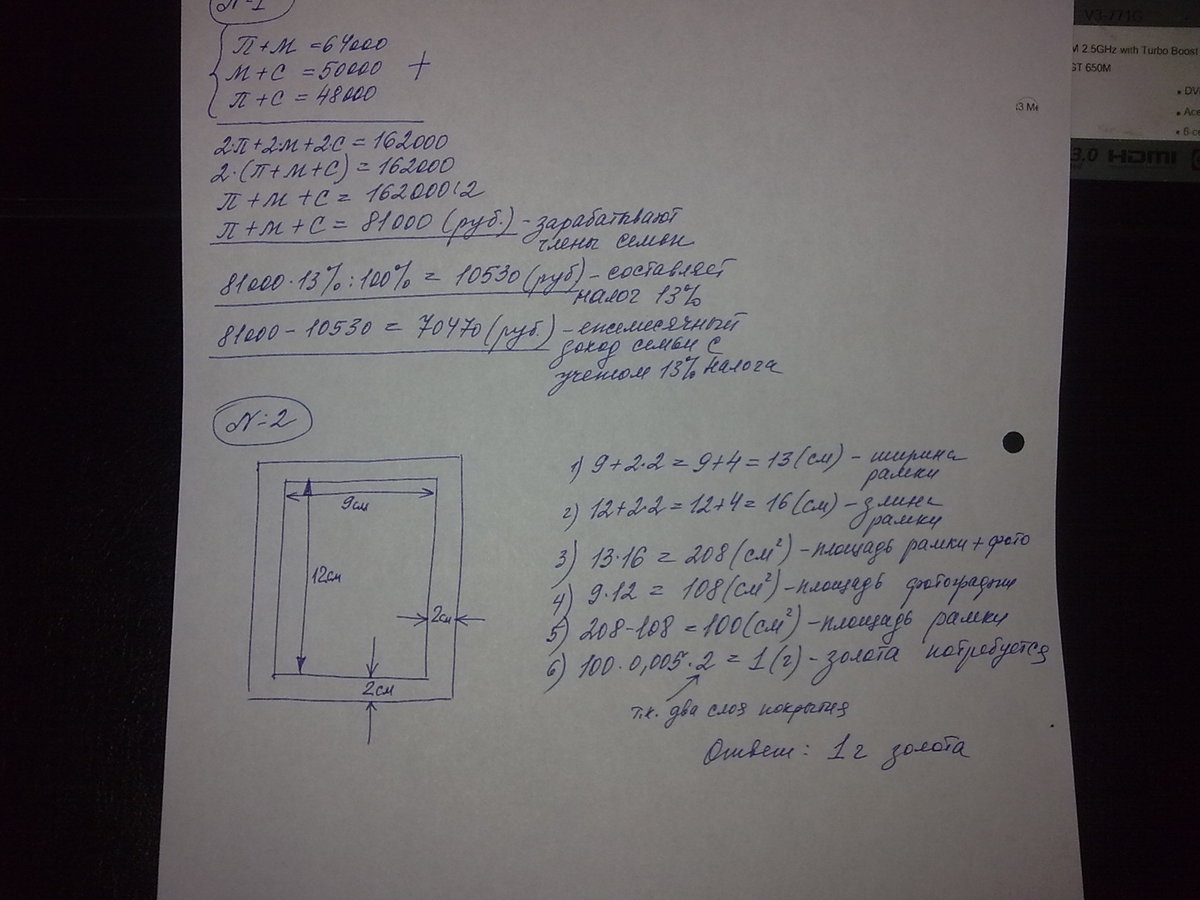 N=1
П+М = 64000
М+С = 50000
П+С = 48000
+
2·П+2·М+2·С = 162000
2·(П+М+С) = 162000
П+М+С = 162000:2
П+М+С = 81000 (руб.) - зарабатывают
члены семьи
81000·13%:100% = 10530 (руб) - составляет
налог 13%
81000 - 10530 = 70470 (руб.) - ежемесячный
доход семьи с
учетом 13% налога
N=2
9см
12см
2см
2см
1) 9+2·2 = 9+4 = 13 (см) - ширина
рамки
2) 12+2·2 = 12+4 = 16 (см) - длина
рамки
3) 13·16 = 208 (см²) - площадь рамки + фото
4) 9·12 = 108 (см²) - площадь фотографии
5) 208-108 = 100 (см²) - площадь рамки
6) 100·0,005·2 = 1 (г) - золота потребуется
т.к. два слоя покрытия
Ответ: 1 г золота
V3-771G
2.5GHz with Turbo Boost
GT 650M
DV
Ace
6-ce
3.0 HDMI